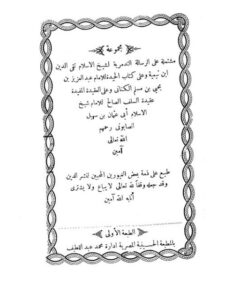 مجموعة
مشتملة على الرسالة التدمرية لشيخ الاسلام تقى الدين
ابن تيمية وعلى كتاب الحيدة للامام عبد العزيز بن
يحيى بن مسلم الكنانى وعلى العقيدة المفيدة
عقيدة السلف الصالح للامام شيخ
الاسلام أبى عثمان بن
الصابونى رحمهم
الله تعالى
آمين
طبع على نفقة بعض الغيورين المحبين لنشر الدين
وقد جعله وقفا لله تعالى لا يباع ولا يشترى
أثابه الله آمين
الطبعة الأولى
بالمطبعة الحسينية المصرية ادارة محمد عبد اللطيف